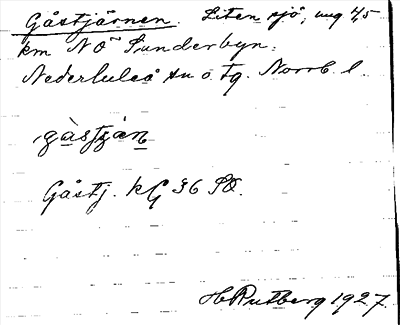 Gåstjärnen. Liten sjö, ung 4,5
km NO Sunderbyn.
Nederluleå sn o tg. Norrb. l.
gåstjǎn
Gåstj. kG 36 SO.
H Rutberg 1927.